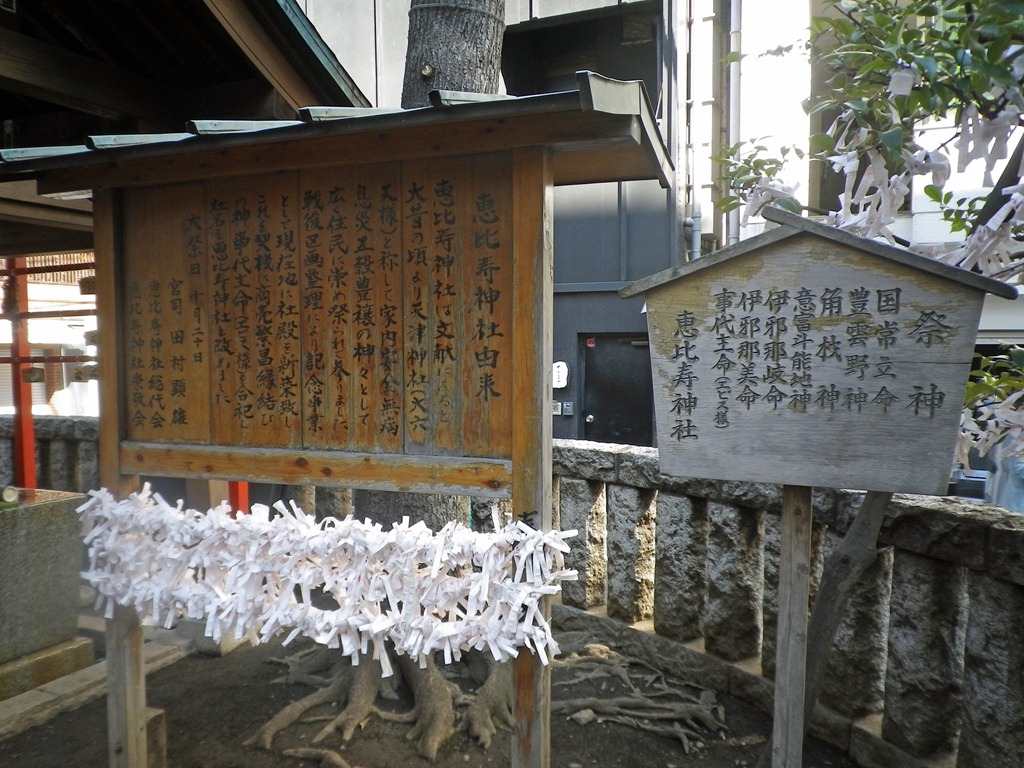 恵比寿神社由来
恵比寿神社は文献による
大昔の頃より天津神社(大六
天様)と称して家内安全無病
息災五穀豊穣の神々として
広く住民に崇め祭られて参りました
戦後区画整理により記念事業
として現在地に社殿を新築致し
これを契機に商売繁昌縁結び
の神事代主命(エビス様)を合祀し
社名も恵比寿神社と改めました
大祭日 十月二十日
宮司 田村顕雄
恵比寿神社総代会
恵比寿神社崇敬会
祭神
国常立命
豊雲野神
角枝神
意富斗能地神
伊邪那岐命
伊邪那美命
事代主命(エビス様)
恵比寿神社